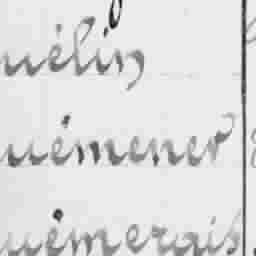 uélin
uémener
uémerais